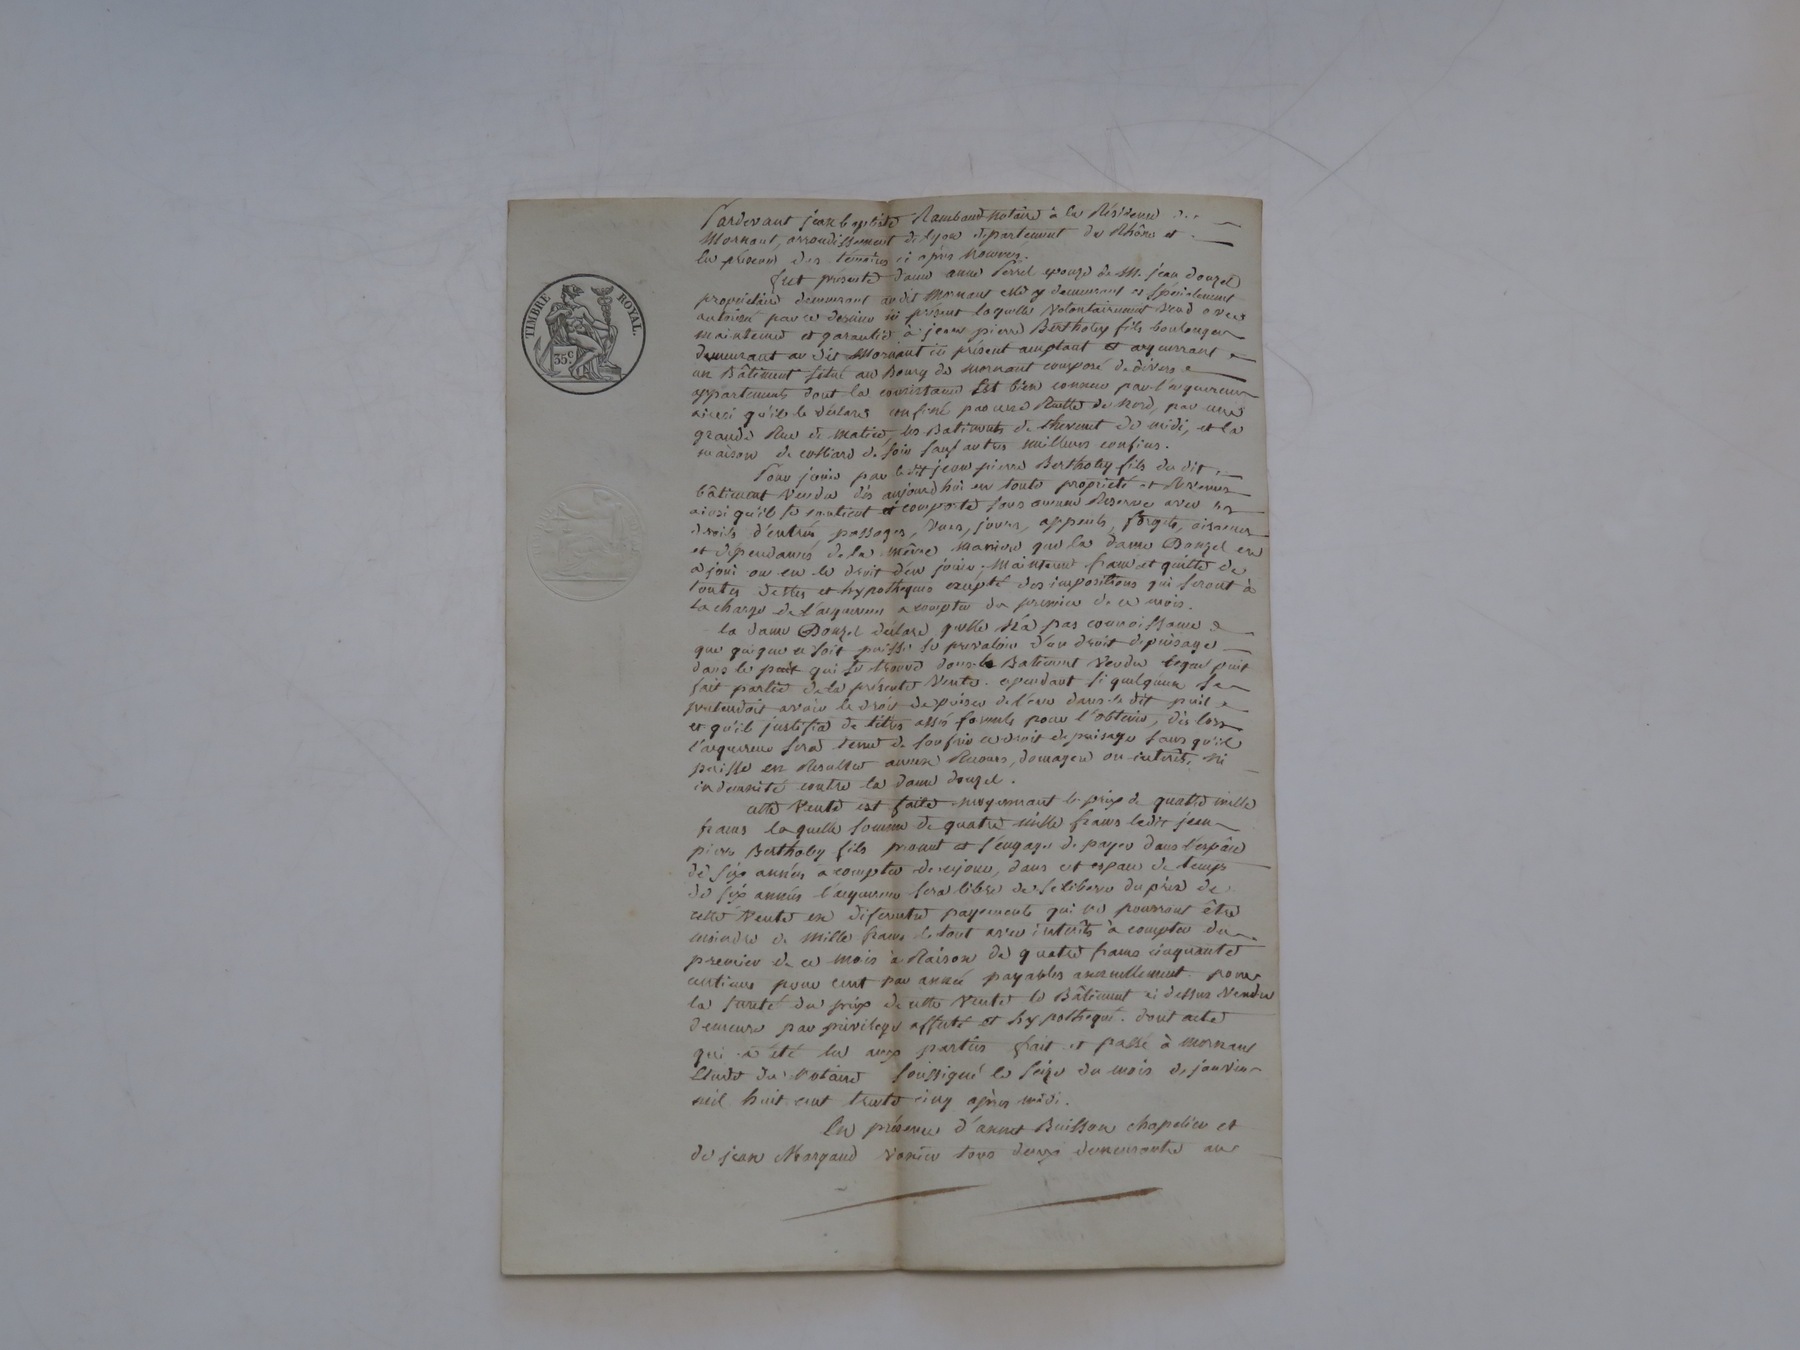 TIMBRE ROYAL.
35 c.
Pardevant jean baptiste Rambaud notaire à la Résidence de
Mornant, arrondissement de lyon departement du Rhône et
En présence des temoins ci après nommés.
fut présente dame anne Perrel epouse de M. jean douzel
propriétaire demeurant au dit Mornant elle y demeurant et spécialement
autorisé par ce dernier ici présent laquelle volontairement vend avec
maintenue et garantie à jean pierre Bertholey fils boulonger
demeurant au dit Mornant ici présent acceptant et acquerrant
un Bâtiment situé au Bourg de Mornant composé de divers
appartements dont la consistance est bien connue par l'acquereur
ainsi qu'il le déclare confiné par une Ruelle de Nord, par une
grande Rue de Matin, les Batiments de thevenet de midi, et la
maison de de soir sauf autres meilleurs confins.
Pour jouir par le dit jean pierre Bertholey fils du dit
bâtiment vendu dès aujourd'hui en toute propriété et Revenus
ainsi qu'il se contient et comporte sans aucune Reserve avec ses
droits d'entrée, passages, vues, jours, appents, forgets, aisances
et dépendances de la même maniere que la dame Douzel en
a joui ou eu le droit d'en jouir, Maintenue franc et quitte de
toutes dettes et hypotheques excepté des impositions qui seront à
la charge de l'acquereur a compter du premier de ce mois.
la dame Douzel déclare qu'elle n'a pas connoissance
que quique ce soit puisse se prevaloir d'un droit de puisage
dans le puit qui se trouve dans le Batiment vendu lequel puit
fait partie de la présente Vente. cependant si quelqu'un
pretendoit avoir le droit de puiser de l'eau dans le dit puit
et qu'il justifia de titres assé formels pour l'obtenir, dès lors
l'acquereur sera tenu de souffrir ce droit de puisage sans qu'il
puisse en Resulter aucun Recours, domages ou intérêts, ni
indemnité contre la dame douzel.
cette Vente est faite moyennant le prix de quatre mille
francs laquelle somme de quatre mille francs ledit jean
pierre Bertholey fils promet et s'engage de payer dans l'espâce
de six années a compter de ce jour, dans cet espace de temps
de six années l'acquereur sera libre de se liberer du prix de
cette Vente en diferents payements qui ne pourront être
moindre de Mille francs le tout avec intérêts à compter du
premier de ce mois à Raison de quatre francs cinquante
centimes pour cent par année payables annuellement. pour
la sureté du prix de cette Vente le Bâtiment ci dessus Vendu
demeure par privilege affecté et hypothequé. dont acte
qui a été lu aux parties fait et passé à Mornant
Etude du Notaire soussigné le seize du mois de janvier
mil huit cent trente cinq après midi.
En présence d'annet Buisson chapelier et
de jean Margaud tous deux demeurants au